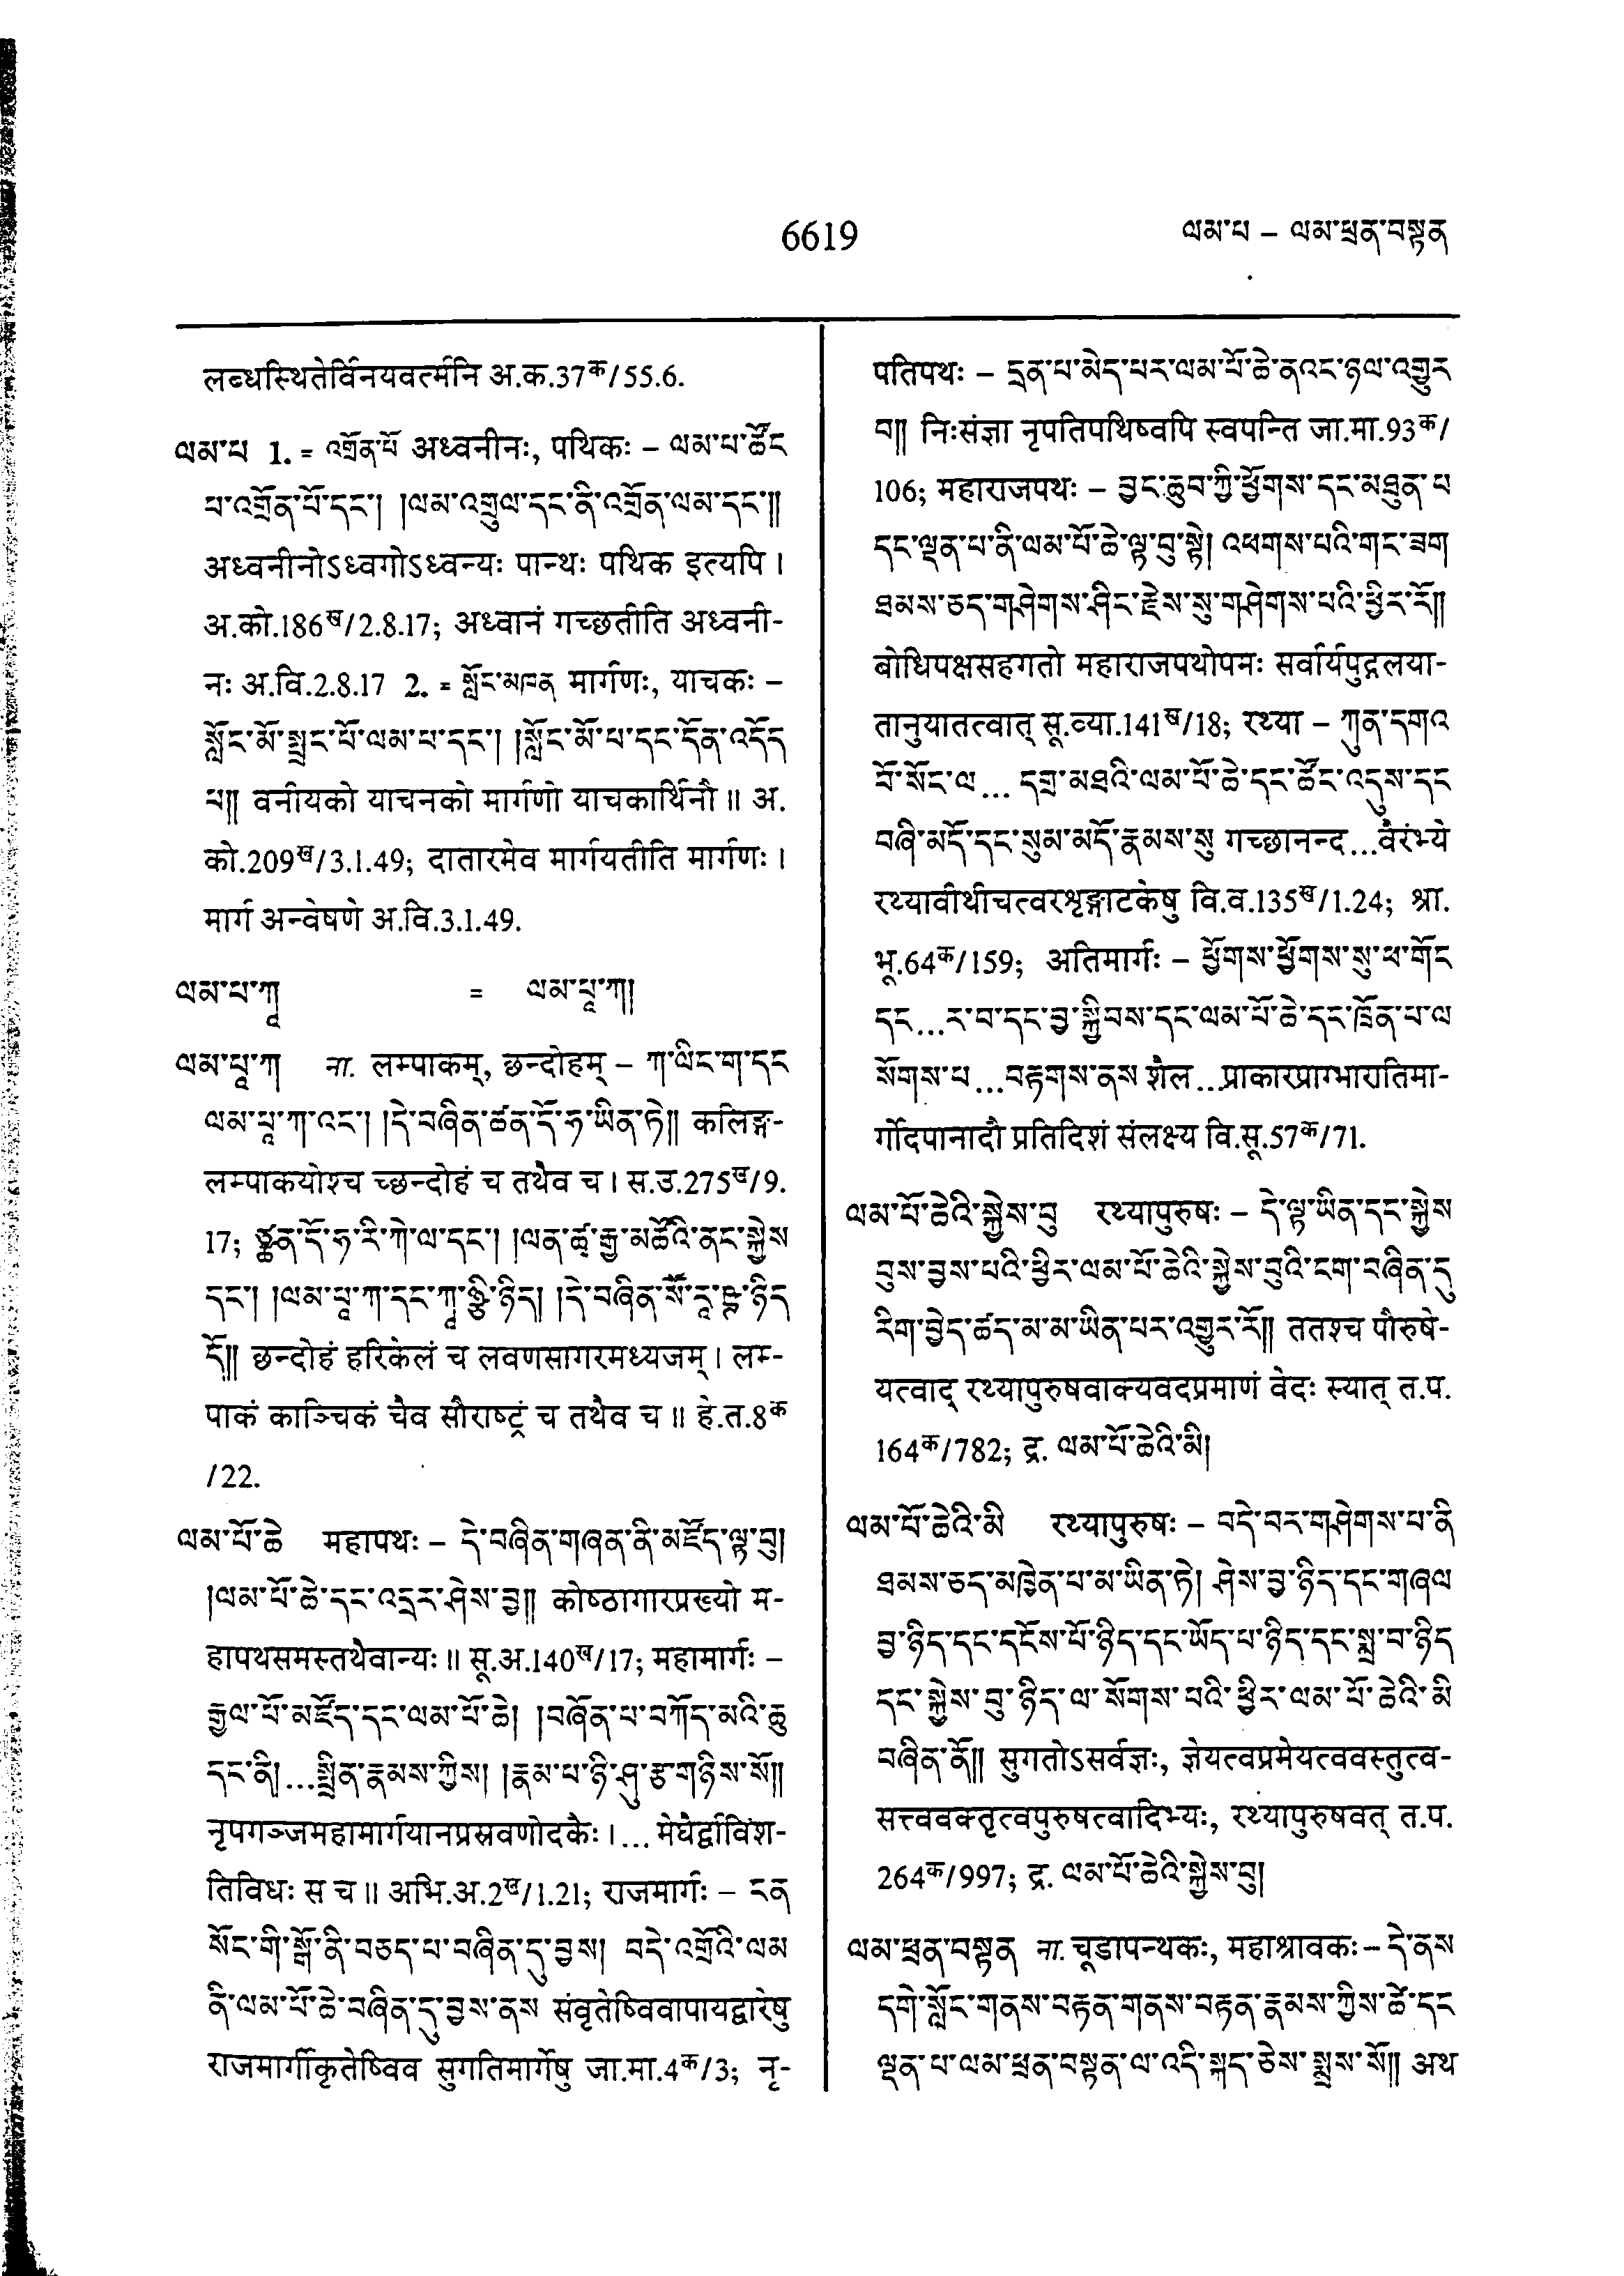 6619
ལམ་པ – ལམ་ཕྲན་བསྟན
लब्धस्थितेर्विनयवर्त्मनि अ.क.37क/55.6.
ལམ་པ 1. = འགྲོན་པོ अध्वनीनः, पथिकः – ལམ་པ་ཚོང
པ་འགྲོན་པོ་དང་། །ལམ་འགྲུལ་དང་ནི་འགྲོན་ལམ་དང་༎
अध्वनीनोऽध्वगोऽध्वन्यः पान्थः पथिक इत्यपि ।
अ.को.186ख/2.8.17; अध्वानं गच्छतीति अध्वनी-
नः अ.वि.2.8.17 2. = སློང་མཁན मार्गणः, याचकः –
སློང་མོ་སྤྲང་པོ་ལམ་པ་དང་། །སློང་མོ་པ་དང་དོན་འདོད
པ༎ वनीयको याचनको मार्गणो याचकार्थिनौ ॥ अ.
को.209ख/3.1.49; दातारमेव मार्गयतीति मार्गणः ।
मार्ग अन्वेषणे अ.वि.3.1.49.
ལམ་པ་ཀཱ = ལམ་པཱ་ཀ།
ལམ་པཱ་ཀ ना. लम्पाकम्, छन्दोहम् – ཀ་ལིང་ག་དང
ལམ་པཱ་ཀ་འང་། །དེ་བཞིན་ཚན་དོ་ཧ་ཡིན་ཏེ༎ कलिङ्ग-
लम्पाकयोश्च च्छन्दोहं च तथैव च । स.उ.275ख/9.
17; ཙྪན་དོ་ཧ་རི་ཀེ་ལ་དང་། །ལན་ཚྭ་རྒྱ་མཚོའི་ནང་སྐྱེས
དང་། །ལམ་པཱ་ཀ་དང་ཀཱ་ཉྩི་ཉིད། །དེ་བཞིན་སཽ་རཱ་ཥྚ་ཉིད
དོ༎ छन्दोहं हरिकेलं च लवणसागरमध्यजम् । लम-
पाकं काञ्चिकं चैव सौराष्ट्रं च तथैव च ॥ हे.त.8क
/22.
ལམ་པོ་ཆེ महापथः – དེ་བཞིན་གཞན་ནི་མཛོད་ལྟ་བུ།
།ལམ་པོ་ཆེ་དང་འདྲར་ཤེས་བྱ༎ कोष्ठागारप्रख्यो म-
हापथसमस्तथैवान्यः ॥ सू.अ.140ख/17; महामार्गः –
རྒྱལ་པོ་མཛོད་དང་ལམ་པོ་ཆེ། །བཞོན་པ་བཀོད་མའི་ཆུ
དང་ནི།...སྤྲིན་རྣམས་ཀྱིས། །རྣམ་པ་ཉི་ཤུ་རྩ་གཉིས་སོ༎
नृपगञ्जमहामार्गयानप्रस्रवणोदकैः ।... मेघैर्द्वाविंश-
तिविधः स च ॥ अभि.अ.2ख/1.21; राजमार्गः – ངན
སོང་གི་སྒོ་ནི་བཅད་པ་བཞིན་དུ་བྱས། བདེ་འགྲོའི་ལམ
ནི་ལམ་པོ་ཆེ་བཞིན་དུ་བྱས་ནས संवृतेष्विवापायद्वारेषु
राजमार्गीकृतेष्विव सुगतिमार्गेषु जा.मा.4क/3; नृ-
पतिपथः – དྲན་པ་མེད་པར་ལམ་པོ་ཆེ་ནའང་ཉལ་འགྱུར
བ༎ निःसंज्ञा नृपतिपथिष्वपि स्वपन्ति जा.मा.93क/
106; महाराजपथः – བྱང་ཆུབ་ཀྱི་ཕྱོགས་དང་མཐུན་པ
དང་ལྡན་པ་ནི་ལམ་པོ་ཆེ་ལྟ་བུ་སྟེ། འཕགས་པའི་གང་ཟག
ཐམས་ཅད་གཤེགས་ཤིང་རྗེས་སུ་གཤེགས་པའི་ཕྱིར་རོ༎
बोधिपक्षसहगतो महाराजपथोपमः सर्वार्यपुद्गलया-
तानुयातत्वात् सू.व्या.141ख/18; रथ्या – ཀུན་དགའ
བོ་སོང་ལ... དགྲ་མཐའི་ལམ་པོ་ཆེ་དང་ཚོང་འདུས་དང
བཞི་མདོ་དང་སུམ་མདོ་རྣམས་སུ गच्छानन्द...वैरंभ्ये
रथ्यावीथीचत्वरशृङ्गाटकेषु वि.व.135ख/1.24; श्रा.
भू.64क/159; अतिमार्गः – ཕྱོགས་ཕྱོགས་སུ་ཕ་གོང
དང...ར་བ་དང་བྱ་སྐྱིབས་དང་ལམ་པོ་ཆེ་དང་ཁྲོན་པ་ལ
སོགས་པ...བརྟགས་ནས शैल...प्राकारप्राग्भारातिमा-
र्गोदपानादौ प्रतिदिशं संलक्ष्य वि.सू.57क/71.
ལམ་པོ་ཆེའི་སྐྱེས་བུ रथ्यापुरुषः – དེ་ལྟ་ཡིན་དང་སྐྱེས
བུས་བྱས་པའི་ཕྱིར་ལམ་པོ་ཆེའི་སྐྱེས་བུའི་ངག་བཞིན་དུ
རིག་བྱེད་ཚད་མ་མ་ཡིན་པར་འགྱུར་རོ༎ ततश्च पौरुषे-
यत्वाद् रथ्यापुरुषवाक्यवदप्रमाणं वेदः स्यात् त.प.
164क/782; द्र. ལམ་པོ་ཆེའི་མི།
ལམ་པོ་ཆེའི་མི रथ्यापुरुषः – བདེ་བར་གཤེགས་པ་ནི
ཐམས་ཅད་མཁྱེན་པ་མ་ཡིན་ཏེ། ཤེས་བྱ་ཉིད་དང་གཞལ
བྱ་ཉིད་དང་དངོས་པོ་ཉིད་དང་ཡོད་པ་ཉིད་དང་སྨྲ་བ་ཉིད
དང་སྐྱེས་བུ་ཉིད་ལ་སོགས་པའི་ཕྱིར་ལམ་པོ་ཆེའི་མི
བཞིན་ནོ༎ सुगतोऽसर्वज्ञः, ज्ञेयत्वप्रमेयत्ववस्तुत्व-
सत्त्ववक्तृत्वपुरुषत्वादिभ्यः, रथ्यापुरुषवत् त.प.
264क/997; द्र. ལམ་པོ་ཆེའི་སྐྱེས་བུ།
ལམ་ཕྲན་བསྟན ना. चूडापन्थकः, महाश्रावकः – དེ་ནས
དགེ་སློང་གནས་བརྟན་གནས་བརྟན་རྣམས་ཀྱིས་ཚེ་དང
ལྡན་པ་ལམ་ཕྲན་བསྟན་ལ་འདི་སྐད་ཅེས་སྨྲས་སོ༎ अथ